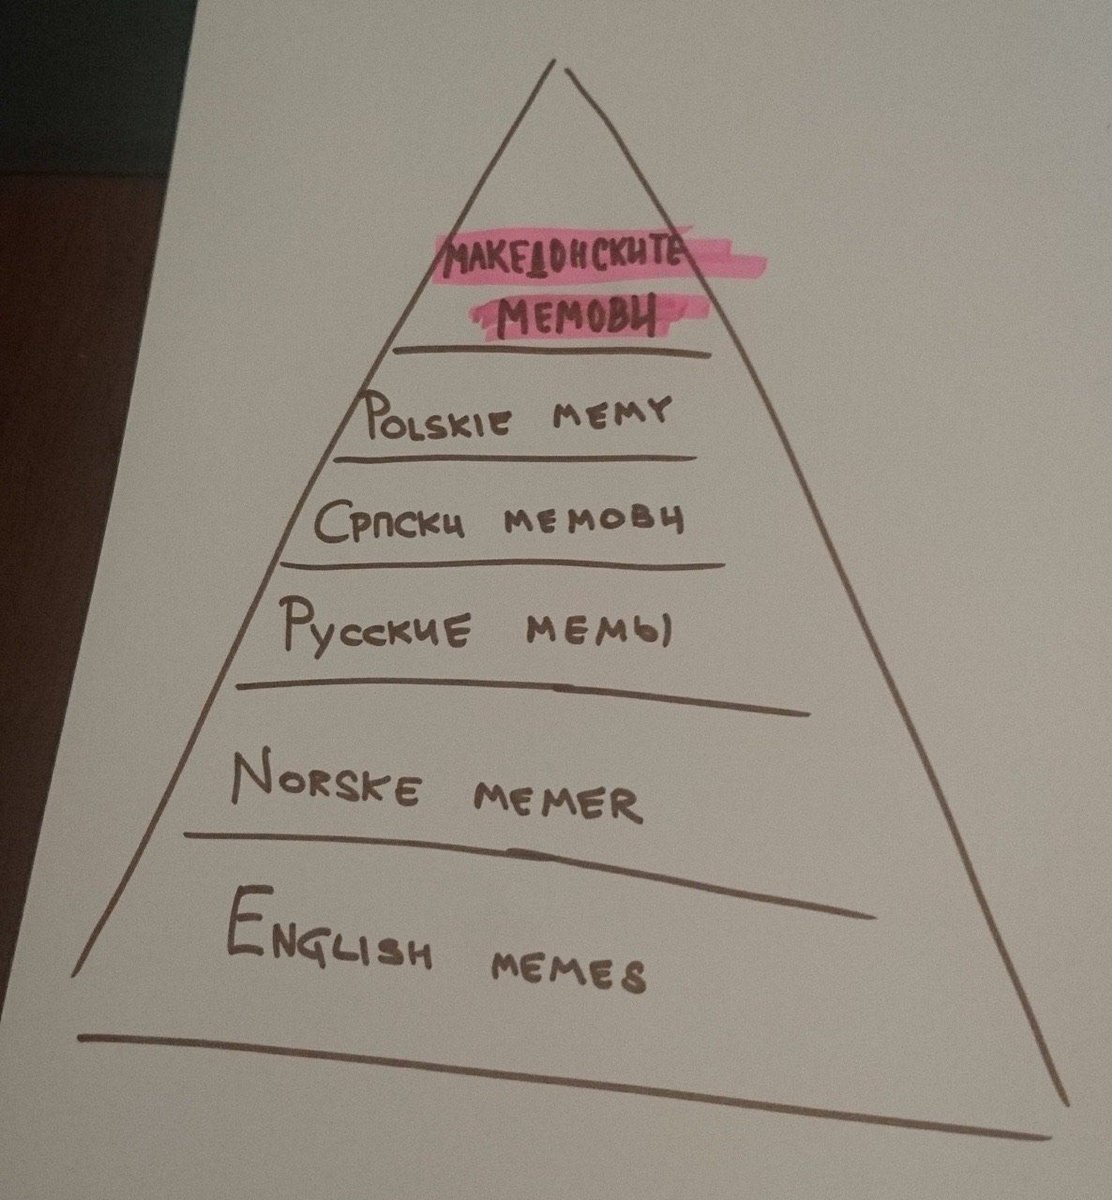 МАКЕДОНСКИТЕ
МЕМОВИ
POLSKIE MEMY
СРПСКИ МЕМОВИ
РУССКИЕ МЕМЫ
NORSKE MEMER
ENGLISH MEMES